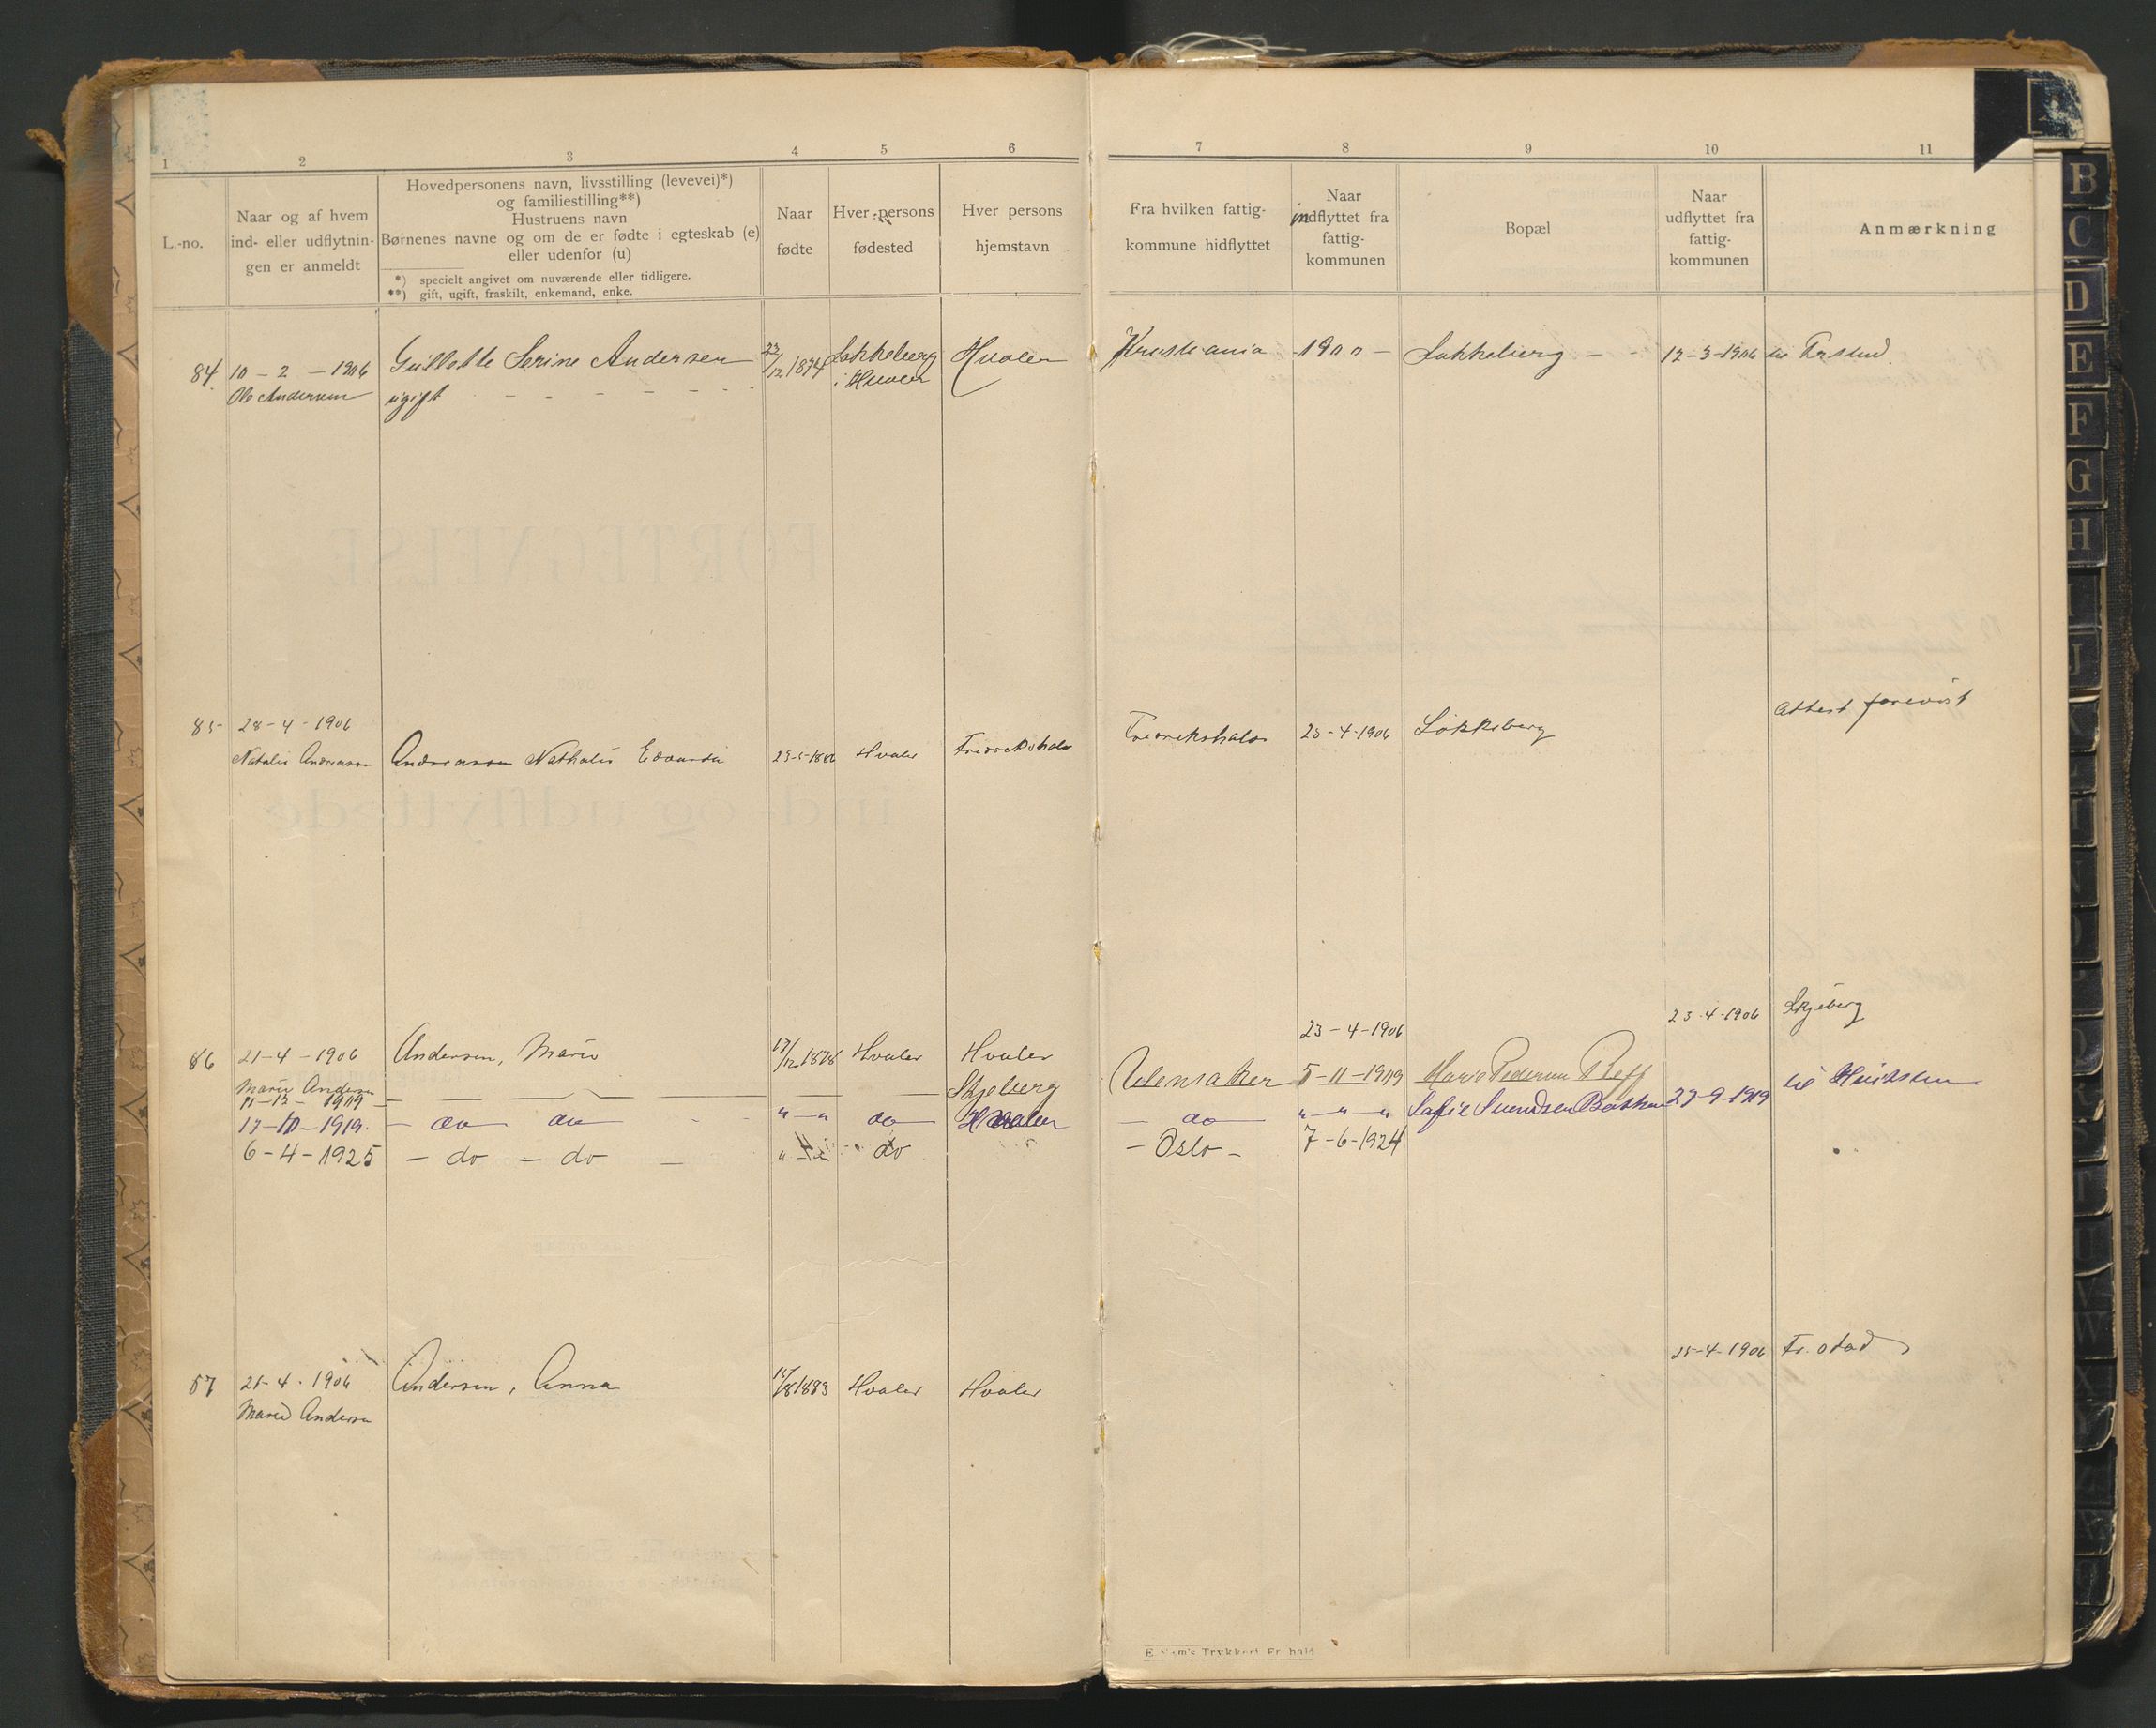 1 2 3 4 5 6 7 8 9 10 11
L.-no.
Naar og af hvem
ind- eller udflytnin-
gen er anmeldt
Hovedpersonens navn, livsstilling (levevei)*)
og familiestilling**)
Hustruens navn
Børnenes navne og om de er fødte i egteskab (e)
eller udenfor (u)
*) specielt angivet om nuværende eller tidligere.
**) gift, ugift, fraskilt, enkemand, enke.
Naar
fødte
Hver persons
fødested
Hver persons
hjemstavn
Fra hvilken fattig-
kommune hidflyttet
Naar
indflyttet fra
fattig-
kommunen
Bopæl
Naar
udflyttet fra
fattig-
kommunen
Anmærkning
84 10-2-1906 Gullotte Serine Andersen 23/12 1874 Løkkeberg Hvaler Kristiania 1900 - Løkkeberg - - 12-3-1906 til Frstad.
Ole Andersen ugift - - - - - - i Hvaler
85- 28-4-1906 Fredrikshald 25-4-1906 Løkkeberg Attest forevist
Natalie Andreassen Andreassen Nathalie Edvarda 23-5-1886 Hvaler Fredrikshald
23-4-1906 23-4-1906 Skjeberg
86 21-4-1906 Andersen, Marie 17/12 1878 Hvaler Hvaler
Marie Andersen
11-12-1919 - Skjeberg Ullensaker 5-11-1919 Marie Pedersen Reff til Halden
17-10-1919. - do do - " - " do Hvaler - do - " - " - " Sofie Svendsen 27-9-1919
6-4-1925 - do - do - " do - Oslo - 7-6-1924
87 21-4-1906 Andersen, Anna 15/8 1883 Hvaler Hvaler 25-4-1906 Fr.stad
Marie Andersen
E. Sem's Trykkeri Fr.hald
B
C
D
E
F
G
H
I
J